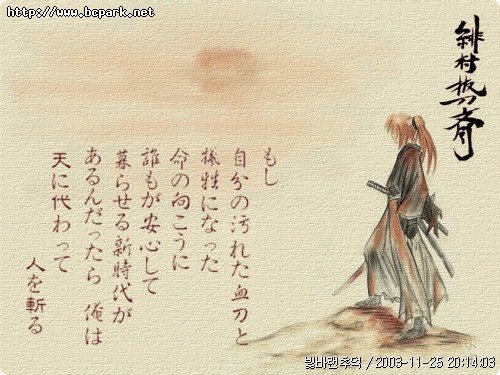 http://www.bcpark.net
緋村抜刀斎
もし
自分の汚れた血刀と
犠牲になった
命の向こうに
誰もが安心して
暮らせる新時代が
あるんだったら 俺は
天に代わって
人を斬る
빛바랜추억 / 2003-11-25 20:14:03